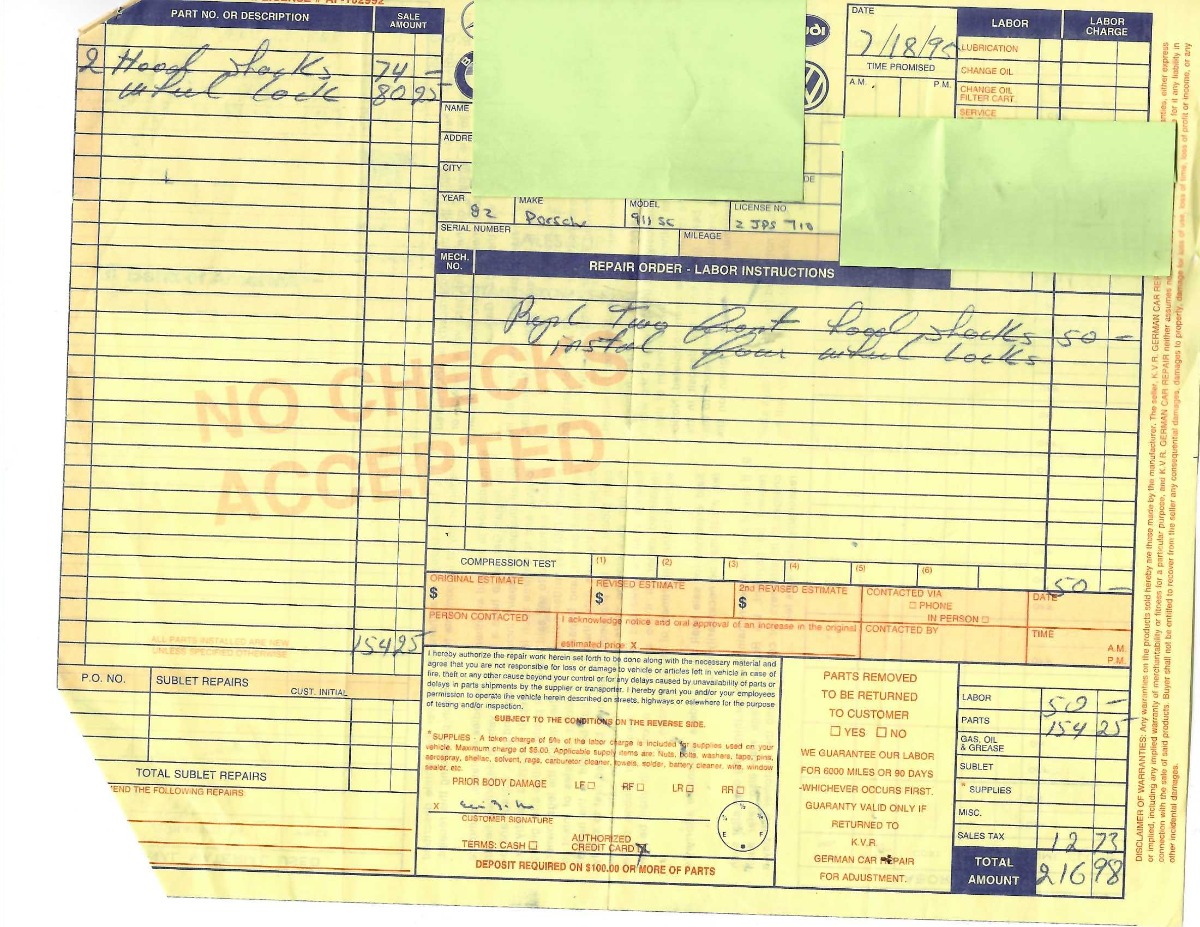 PART NO. OR DESCRIPTION
SALE AMOUNT
2 Hood shocks 74 -
wheel lock 80 25
ALL PARTS INSTALLED ARE NEW
UNLESS SPECIFIED OTHERWISE
154 25
P.O. NO. SUBLET REPAIRS
CUST. INITIAL
TOTAL SUBLET REPAIRS
END THE FOLLOWING REPAIRS:
NAME
ADDRE
CITY
DATE
7/18/95
TIME PROMISED
A.M. P.M.
LABOR LABOR CHARGE
LUBRICATION
CHANGE OIL
CHANGE OIL
FILTER CART.
SERVICE
YEAR MAKE MODEL LICENSE NO.
82 Porsche 911 SC 2 JPS 710
SERIAL NUMBER MILEAGE
MECH. NO. REPAIR ORDER - LABOR INSTRUCTIONS
Repl two front hood shocks 50 -
instal four wheel locks
NO CHECKS
ACCEPTED
COMPRESSION TEST (1) (2) (3) (4) (5) (6)
50 -
ORIGINAL ESTIMATE REVISED ESTIMATE 2nd REVISED ESTIMATE CONTACTED VIA DATE
$ $ $ PHONE
IN PERSON
PERSON CONTACTED I acknowledge notice and oral approval of an increase in the original CONTACTED BY TIME
estimated price. X A.M.
P.M.
I hereby authorize the repair work herein set forth to be done along with the necessary material and
agree that you are not responsible for loss or damage to vehicle or articles left in vehicle in case of
fire, theft or any other cause beyond your control or for any delays caused by unavailability of parts or
delays in parts shipments by the supplier or transporter. I hereby grant you and/or your employees
permission to operate the vehicle herein described on streets, highways or elsewhere for the purpose
of testing and/or inspection.
SUBJECT TO THE CONDITIONS ON THE REVERSE SIDE.
*SUPPLIES - A token charge of 5% of the labor charge is included for supplies used on your
vehicle. Maximum charge of $5.00. Applicable supply items are: Nuts, bolts, washers, tape, pins,
aerospray, shellac, solvent, rags, carburetor cleaner, towels, solder, battery cleaner, wire, window
sealer, etc.
PRIOR BODY DAMAGE LF RF LR RR
X
CUSTOMER SIGNATURE
E F
TERMS: CASH AUTHORIZED
CREDIT CARD X
DEPOSIT REQUIRED ON $100.00 OR MORE OF PARTS
PARTS REMOVED
TO BE RETURNED
TO CUSTOMER
YES NO
WE GUARANTEE OUR LABOR
FOR 6000 MILES OR 90 DAYS
-WHICHEVER OCCURS FIRST.
GUARANTY VALID ONLY IF
RETURNED TO
K.V.R.
GERMAN CAR REPAIR
FOR ADJUSTMENT.
LABOR 50 -
PARTS 154 25
GAS, OIL
& GREASE
SUBLET
* SUPPLIES
MISC.
SALES TAX 12 73
TOTAL AMOUNT 216 98
DISCLAIMER OF WARRANTIES: Any warranties on the products sold hereby are those made by the manufacturer. The seller, K.V.R. GERMAN CAR REP
or implied, including any implied warranty of merchantability or fitness for a particular purpose, and K.V.R. GERMAN CAR REPAIR neither assumes
connection with the sale of said products. Buyer shall not be entitled to recover from the seller any consequential damages, damages to property, damage for loss of use, loss of time, loss of profit or income, or any
other incidental damages.